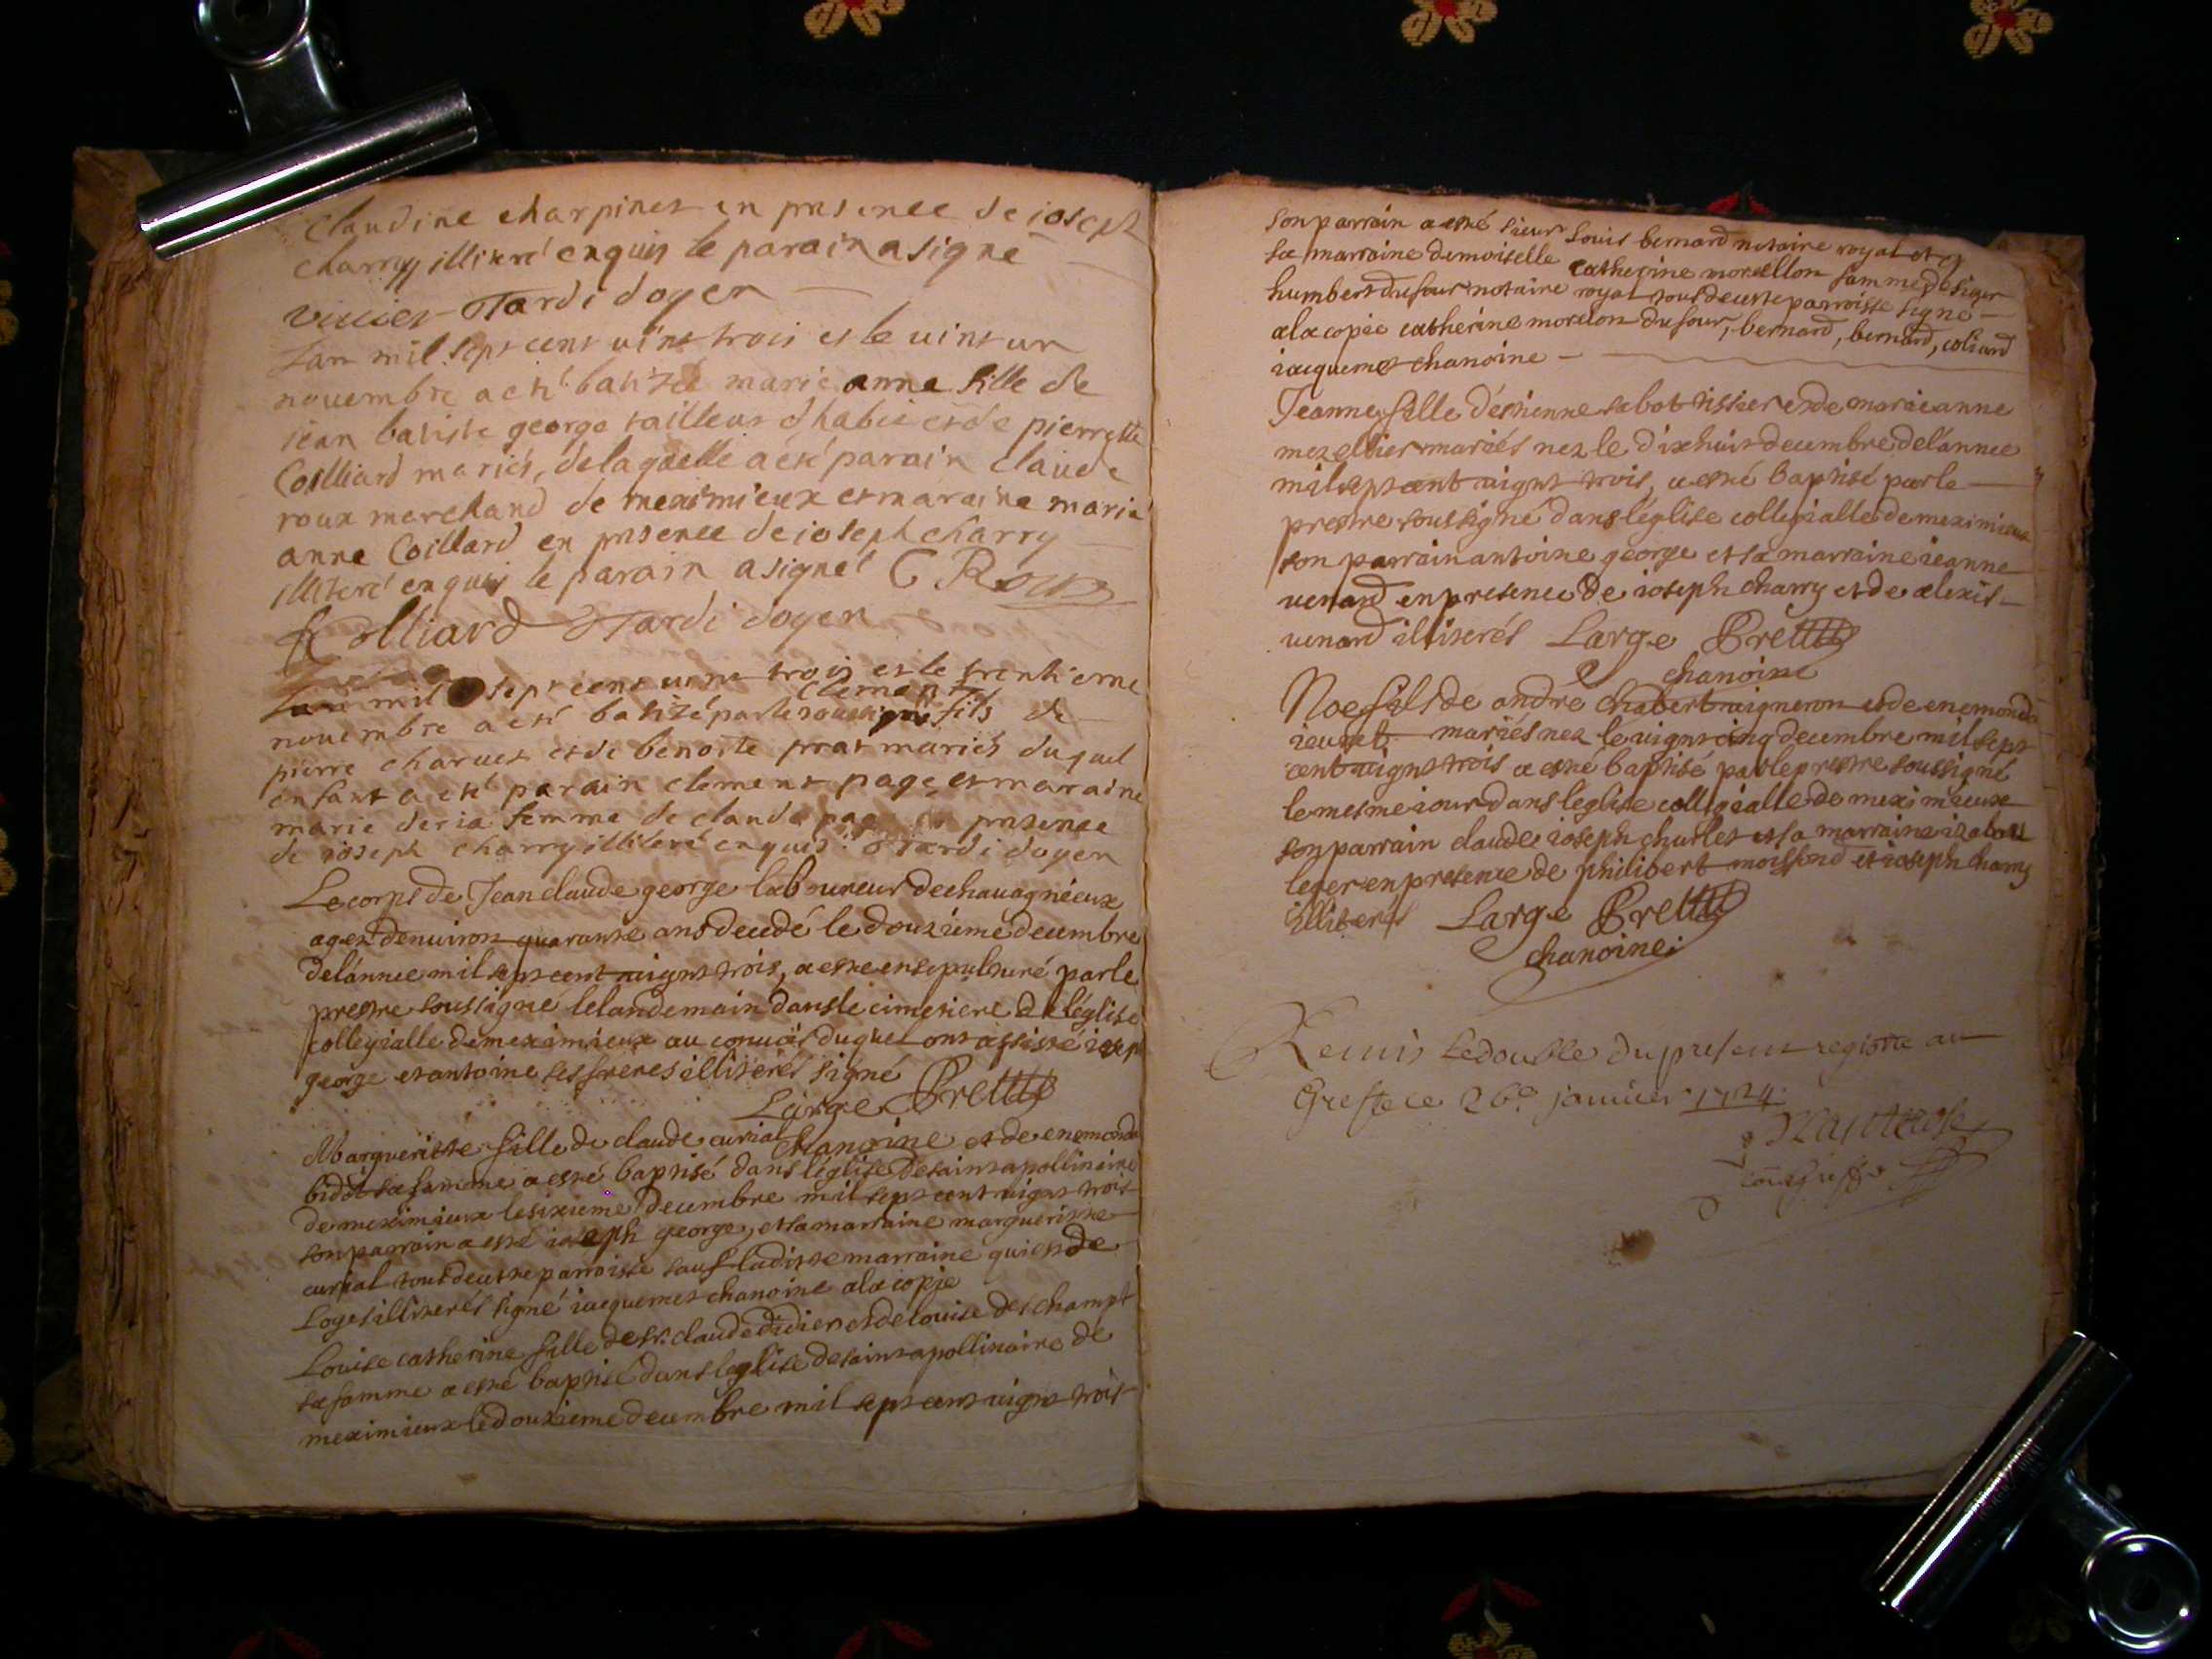 Claudine charpinet en presence de ioseph
charry illiteré enquis le parain a signé
Tardi doyen
Lan mil sept cent uint trois et le uint un
nouembre a eté batizée marie anne fille de
iean batiste george tailleur d habis et de pierrette
Coilliard mariés, de laquelle a eté parain claude
roux marchand de meximieux et maraine marie
anne Coillard en presence de ioseph charry
illiteré enquis le parain a signé C Roux
Colliard Tardi doyen
Lan mil sept cent uint trois et le trentieme
clement
nouembre a eté batizé par le soussigné fils de
pierre charuet et de benoite prat mariés duquel
enfant a eté parain clement page et maraine
marie deria femme de claude page en presence
de ioseph charry illiteré enquis Tardi doyen
Le corps de Jean claude george laboureur de chauagnieux
agez denuiron quarante ans decedé le douzieme decembre
de lannee mil sept cent uignt trois, a estre ensepulturé par le
prestre soussigne le landemain dans le cimetiere de léglise
collegialle de meximieux au conuoi duquel ont assisté iosep
george et antoine ses freres illiterés signé
Large Bret
chanoine
Margueritte fille de claude curial et de enemonde
bidot sa famme a estré baptisé dans léglise de saint apollinaire
de meximieux le sixieme decembre mil sept cent uignt trois
son parrain a estré ioseph george, et sa marraine margueritte
curial tout de cette parroisse sauf laditte marraine qui est de
Loges illiterés signé iacquemet chanoine a la copie
Louise catherine fille de sr. claude didier et de louise deschampt
sa famme a estré baptisé dans leglise de saint apollinaire de
meximieux le douzieme decembre mil sept cent uignt trois
son parrain a estré sieur Louis bernard notaire royal et
sa marraine demoiselle catherine morellon famme de sieur
humbert dufour notaire royal tout de cette parroisse signé
a la copie catherine morelon dufour, bernard, bernard, coliard
iacquemet chanoine
Jeanne fille déstienne sabot tissier et de marie anne
mezellier mariés nez le dixhuit decembre de lánnee
mil sept cent uignt trois, a estré baptisé par le
prestre soussigné dans léglise collegialle de meximieux
son parrain antoine george et sa marraine ieanne
uenard en presence de ioseph charry et de alexis
uenard illiterés Large Bret
chanoine
Noe fils de andré chabert uigneron et de enemonde
mariés nez le uignt cinq decembre mil sept
cent uignt trois a estré baptisé par le prestre soussigné
le mesme iour dans léglise collegialle de meximieux
son parrain claude ioseph charles et sa marraine
leger en presence de philibert moissond et ioseph charry
illiterés Large Bret
chanoine
Remis Le double du present registre au
Greffe ce 26e januier 1724